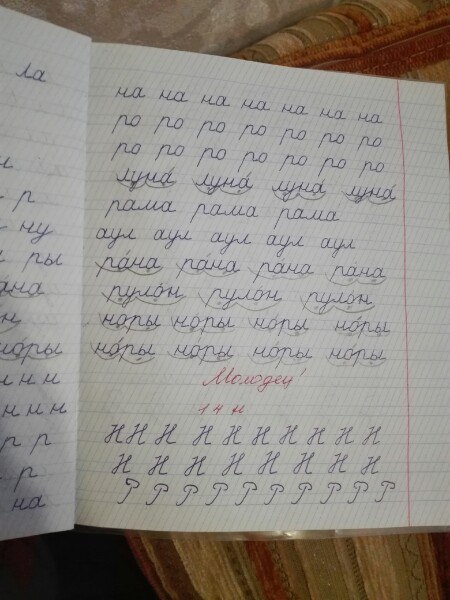 ла
н
р
ну
ры
на
н
норы
н н н
н н н
р р
р
на
на на на на на на на
ро ро ро ро ро ро ро
ро ро ро ро ро ро ро
луна́ луна́ луна́ луна́
рама рама рама
аул аул аул аул аул
ра́на ра́на ра́на ра́на
руло́н руло́н руло́н
но́ры но́ры но́ры но́ры
но́ры но́ры но́ры но́ры
Молодец!
14 н
Н Н Н Н Н Н Н Н Н Н
Н Н Н Н Н Н Н Н
Р Р Р Р Р Р Р Р Р Р